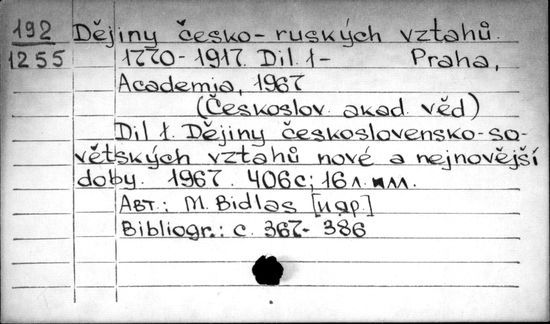 192 Dějiny česko-ruských vztahů.
1255 1770-1917. Díl. 1- Praha,
Academia, 1967
(Českoslov. akad. věd)
Díl 1. Dějiny československo-so-
větských vztahů nové a nejnovější
doby. 1967. 406с; 16 л. илл.
Авт.: M. Bidlas [и др.]
Bibliogr.: с. 367-386